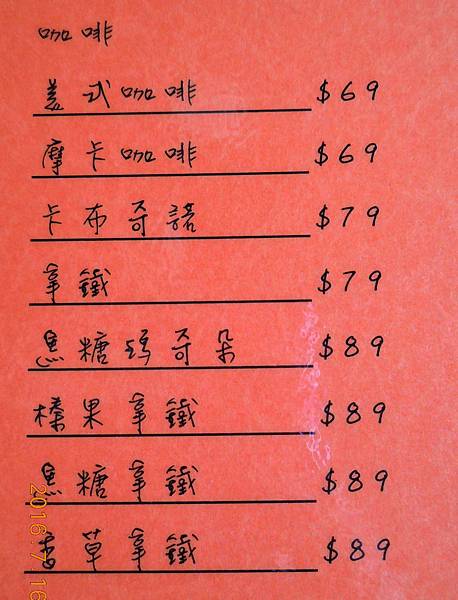 咖啡
美式咖啡 $69
摩卡咖啡 $69
卡布奇諾 $79
拿鐵 $79
焦糖瑪奇朵 $89
榛果拿鐵 $89
焦糖拿鐵 $89
香草拿鐵 $89
2016 7 16